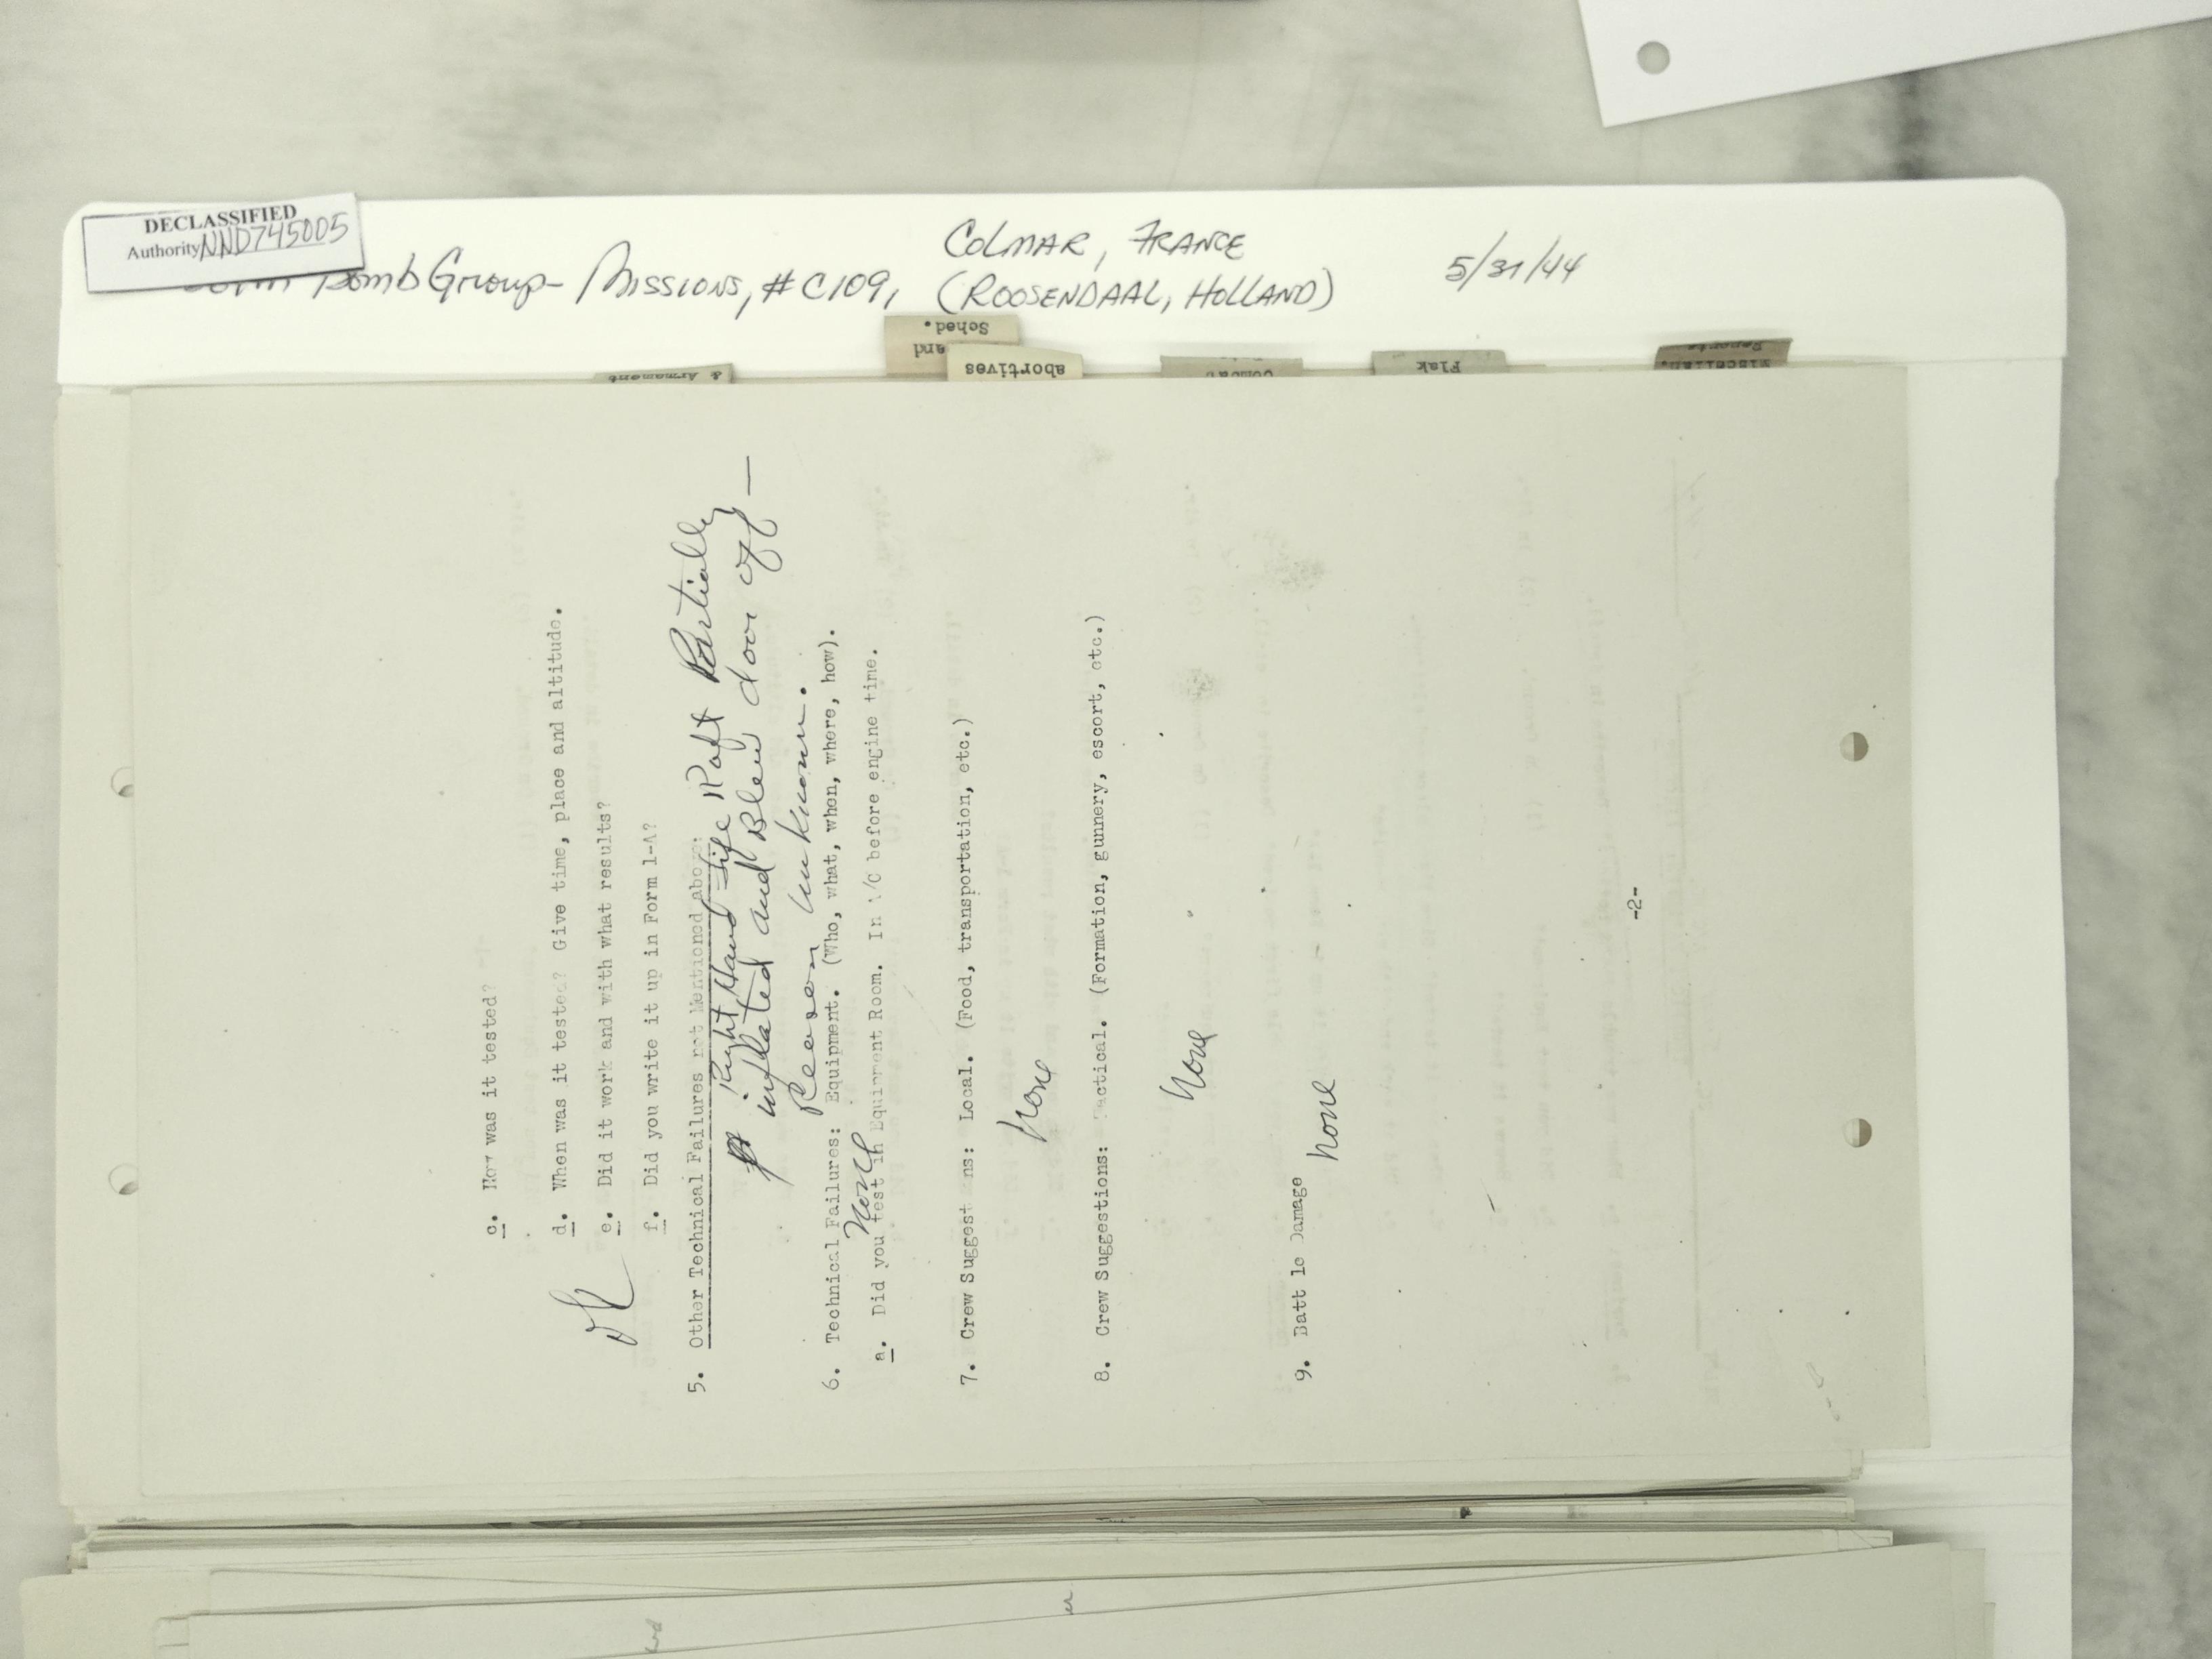 DECLASSIFIED
Authority NND745005
Bomb Group - Missions, #C109,
COLMAR, FRANCE
(ROOSENDAAL, HOLLAND)
5/31/44
& Armament
and
Sched.
abortives
Combat
Flak
Miscellan.
Reports
c. How was it tested?
d. When was it tested? Give time, place and altitude.
e. Did it work and with what results?
f. Did you write it up in Form 1-A?
5. Other Technical Failures not Mentioned above:
Right Hand Life Raft Partially
inflated and Blew door off —
Reason unknown.
6. Technical Failures: Equipment. (Who, what, when, where, how).
None
a. Did you test in Equipment Room. In A/C before engine time.
7. Crew Suggest ns: Local. (Food, transportation, etc.)
None
8. Crew Suggestions: Tactical. (Formation, gunnery, escort, etc.)
None
9. Batt le Damage
None
-2-